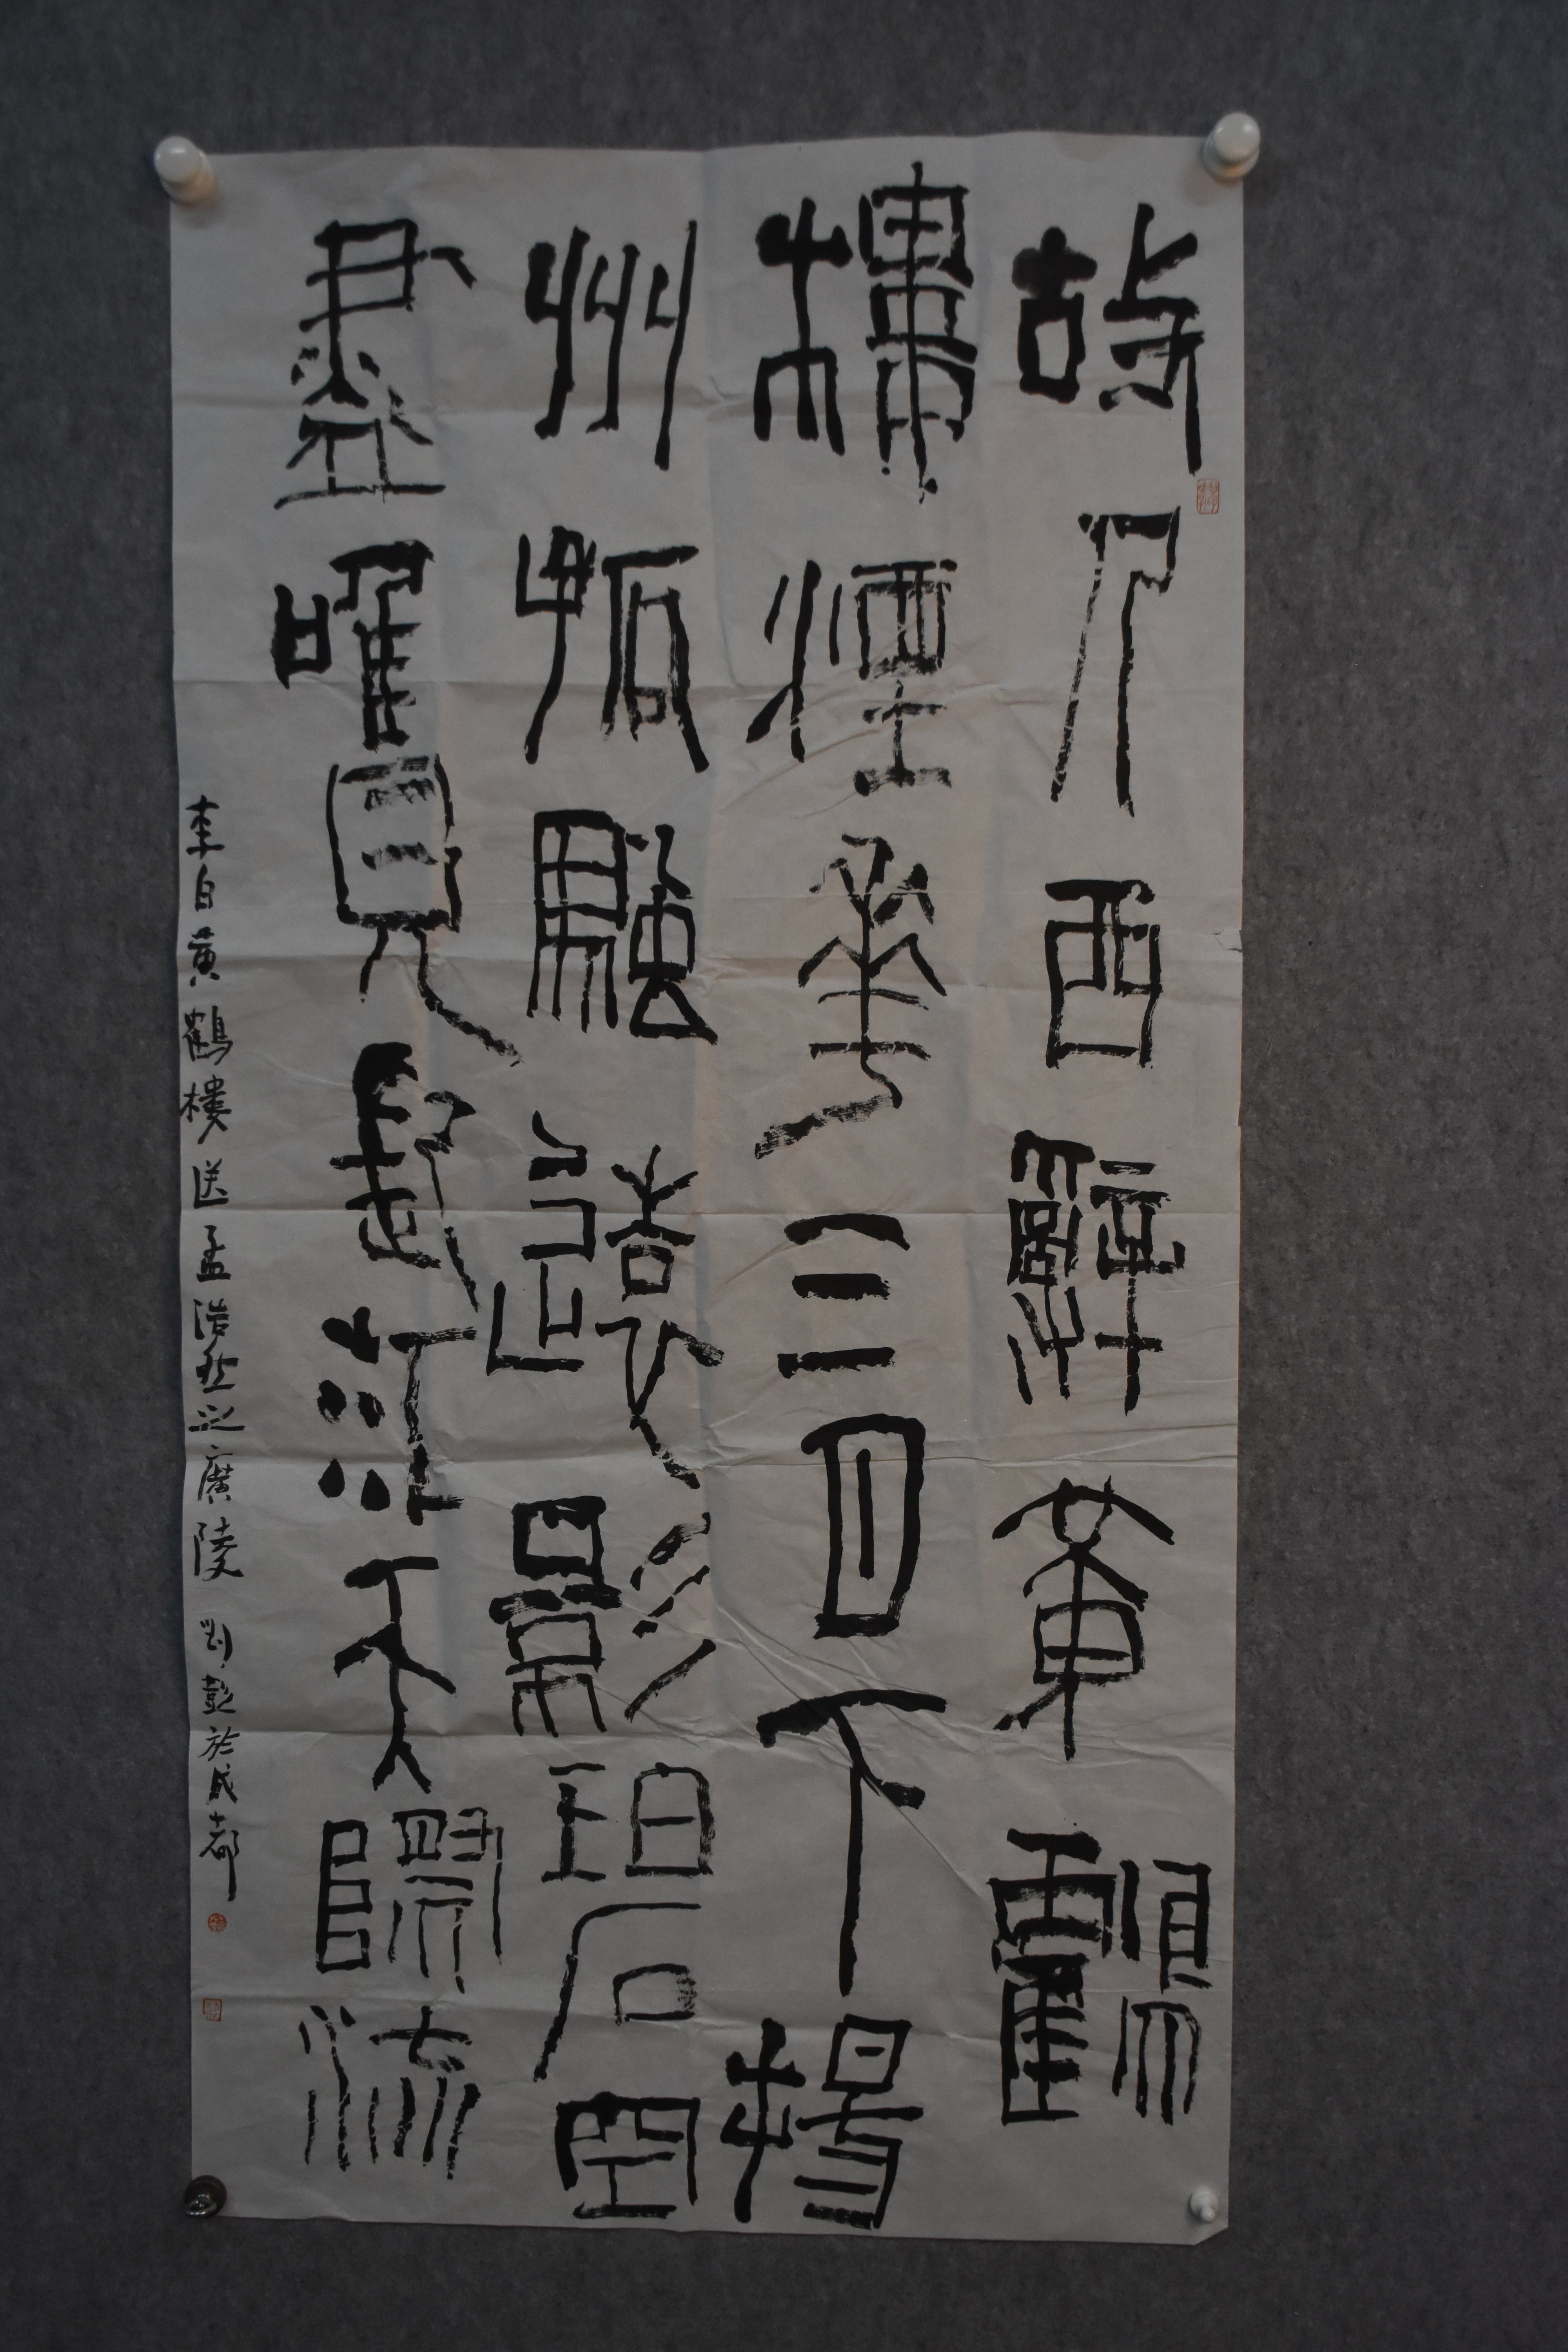 故人西辭黃鶴
樓煙華三月下揚
州孤颿遠影碧空
盡唯見長江天際流
李白黃鶴樓送孟浩然之廣陵 劉彭於成都